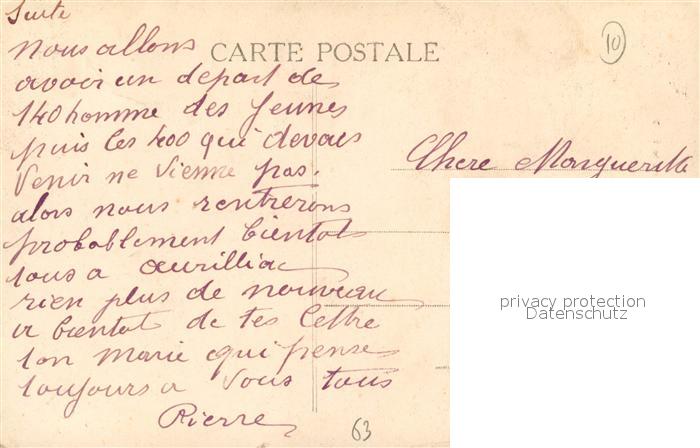 Suite
Nous allons
CARTE POSTALE
10
avoir un depart de
140 homme des Jeunes
puis les 400 qui devais
Venir ne Vienne pas.
Chere Marguerite
alors nous rentrerons
probablement bientot
tous a Aurilliac
rien plus de nouveau
a bientot de tes Lettre
ton Marie qui pense
toujours a Vous tous
Pierre
63
privacy protection
Datenschutz